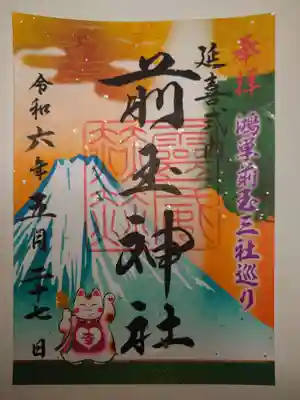 奉拝
鴻巣前玉三社巡り
延喜式内
前玉神社
令和六年五月二十七日
幸